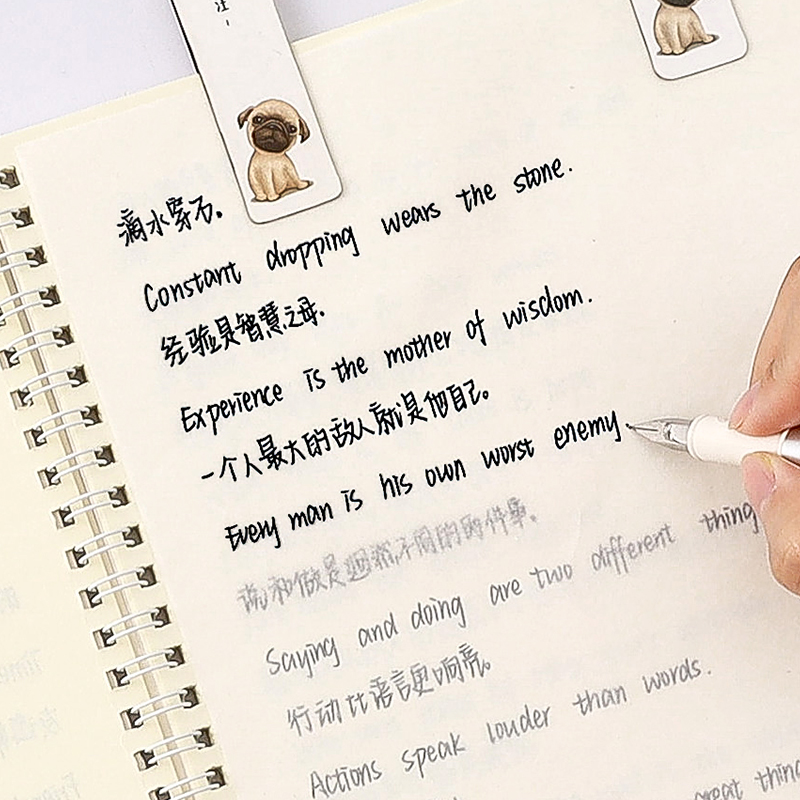 注
滴水穿石。
Constant dropping wears the stone.
经验是智慧之母.
Experience is the mother of wisdom.
一个人最大的敌人就是他自己。
Every man is his own worst enemy.
说和做是迥然不同的两件事.
Saying and doing are two different thing
行动比语言更响亮。
Actions speak louder than words.
great thing